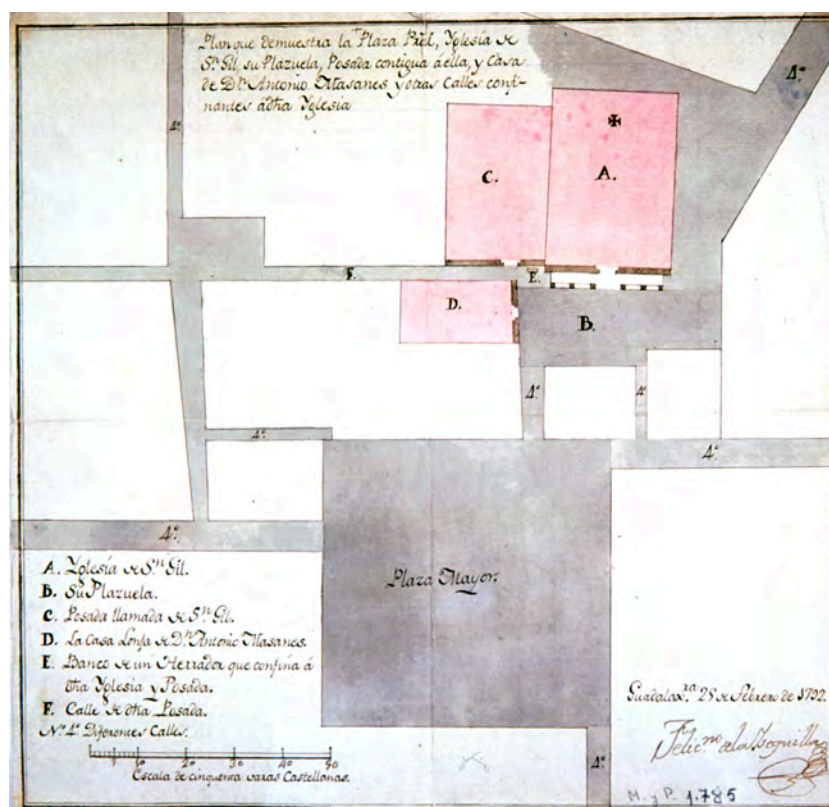 Plan que demuestra la Plaza Pral, Yglesia de
Sn. Gil, su Plazuela, Posada contigua á ella, y Casa
de Dn. Antonio Masanes y otras Calles confi-
nantes á dha Yglesia
4º
4º
C.
A.
F.
E.
D.
B.
4º
4º
4º
4º
4º
Plaza Mayor.
A. Yglesia de Sn. Gil.
B. Su Plazuela.
C. Posada llamada de Sn. Gil.
D. La Casa Lonja de Dn. Antonio Masanes.
E. Banco de un Herrador que confina á
dha Yglesia y Posada.
F. Calle de dha Posada.
Nº 4º Diferentes Calles.
10 20 30 40 50
Escala de cinquenta varas Castellanas.
Guadalaxra. 28 de Febrero de 1792.
Felicno. de la
4º
M. y P. 1.785